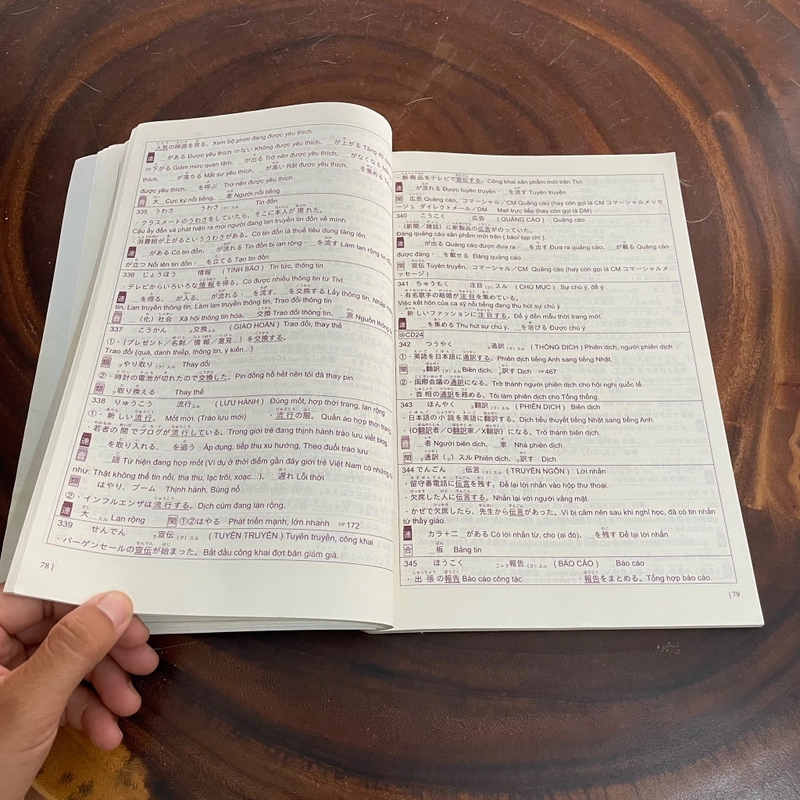 人気の映画を見る。Xem bộ phim đang được yêu thích.
連 __がある Được yêu thích ⇔ない Không được yêu thích, __が上がる Tăng độ
⇔下がる Giảm mức quan tâm, __が出る Trở nên được yêu thích, __がなくなる
thích, __が落ちる Mất sự yêu thích, __が高い Rất được yêu thích, __を集める
được yêu thích, __を呼ぶ Trở nên được yêu thích
合 大__ Cực kỳ nổi tiếng, __者 Người nổi tiếng
335 うわさ うわさ スル Tin đồn
・クラスメートのうわさをしていたら、そこに本人が現れた。
Cậu ấy đến và phát hiện ra mọi người đang lan truyền tin đồn về mình.
・消費税が上がるといううわさがある。Có tin đồn là thuế tiêu dùng tăng lên.
連 __がある Có tin đồn, __が流れる Tin đồn bị lan rộng・__を流す Làm lan rộng tin đồn
が立つ Nổi lên tin đồn・__を立てる Tạo tin đồn
336 じょうほう 情報 ( TÌNH BÁO ) Tin tức, thông tin
テレビからいろいろな情報を得る。Có được nhiều thông tin từ Tivi.
連 __を得る、__が入る、__が流れる・__を流す、__を交換する Lấy thông tin, Nhập
tin, Lan truyền thông tin, Làm lan truyền thông tin, Trao đổi thông tin
合 (化)社会 Xã hội thông tin hóa, __交換 Trao đổi thông tin, __源 Nguồn thông
337 こうかん 交換(ヲ)スル ( GIAO HOÁN ) Trao đổi, thay thế
①・{プレゼント／名刺／情報／意見…}を交換する。
Trao đổi {quà, danh thiếp, thông tin, ý kiến…}
類 やり取り(ヲ)スル Trao đổi
②・時計の電池が切れたので交換した。Pin đồng hồ hết nên tôi đã thay pin.
類 取り換える Thay thế
338 りゅうこう 流行スル ( LƯU HÀNH ) Đúng mốt, hợp thời trang, lan rộng
①・新しい流行。 Mốt mới (Trào lưu mới) ・流行の服。 Quần áo hợp thời trang
・若者の間でブログが流行している。Trong giới trẻ đang thịnh hành trào lưu viết blog.
連 __を取り入れる、__を追う Áp dụng, tiếp thu xu hướng, Theo đuổi trào lưu
合 __語 Từ hiện đang hợp mốt (Ví dụ ở thời điểm gần đây giới trẻ Việt Nam có những
như: Thật không thể tin nổi, tha thu, lạc trôi, xoạc…)、__遅れ Lỗi thời
類 はやり、ブーム Thịnh hành, Bùng nổ
②・インフルエンザは流行する。Dịch cúm đang lan rộng.
連 大__ Lan rộng 関 ①②はやる Phát triển mạnh, lớn nhanh ☞172
339 せんでん 宣伝(ヲ)スル ( TUYÊN TRUYỀN ) Tuyên truyền, công khai
・バーゲンセールの宣伝が始まった。Bắt đầu công khai đợt bán giảm giá.
78 |
新商品をテレビで宣伝する。Công khai sản phẩm mới trên Tivi.
連 __が流れる Được tuyên truyền・__を流す Tuyên truyền
関 広告 Quảng cáo, コマーシャル／CM Quảng cáo (hay còn gọi là CM コマーシャルメッセ
ージ)、ダイレクトメール／DM Mail trực tiếp (hay còn gọi là DM)
340 こうこく 広告 ( QUẢNG CÁO ) Quảng cáo
・{新聞／雑誌}に新製品の広告がのっていた。
Đăng quảng cáo sản phẩm mới trên { báo/ tạp chí }
連 __が出る Quảng cáo được đưa ra・__を出す Đưa ra quảng cáo, __が載る Quảng cáo
được đăng・__を載せる Đăng quảng cáo
関 宣伝 Tuyên truyền, コマーシャル／CM Quảng cáo (hay còn gọi là CM コマーシャルメ
ッセージ)
341 ちゅうもく 注目(ヲ)スル ( CHÚ MỤC ) Sự chú ý, để ý
・有名歌手の結婚が注目を集めている。
Việc kết hôn của ca sỹ nổi tiếng đang thu hút sự chú ý.
・新しいファッションに注目する。Để ý đến mẫu thời trang mới.
連 __を集める Thu hút sự chú ý, __を浴びる Được chú ý
@CD24
342 つうやく 通訳(ヲ)スル ( THÔNG DỊCH ) Phiên dịch; người phiên dịch
①・英語を日本語に通訳する。Phiên dịch tiếng Anh sang tiếng Nhật.
関 翻訳(ヲ)スル Biên dịch, 訳す Dịch ☞467
②・国際会議の通訳になる。Trở thành người phiên dịch cho hội nghị quốc tế.
・首相の通訳を務める。Tôi làm phiên dịch cho Tổng thống.
343 ほんやく 翻訳(ヲ)スル ( PHIÊN DỊCH ) Biên dịch
・日本語の小説を英語に翻訳する。Dịch tiểu thuyết tiếng Nhật sang tiếng Anh.
・{O翻訳者／O翻訳家／X翻訳}になる。Trở thành biên dịch.
合 __者 Người biên dịch, __家 Nhà phiên dịch
関 通訳(ヲ)スル Phiên dịch, 訳す Dịch
344 でんごん 伝言(ヲ)スル ( TRUYỀN NGÔN ) Lời nhắn
・留守番電話に伝言を残す。Để lại lời nhắn vào hộp thư thoại.
・欠席した人に伝言する。Nhắn lại với người vắng mặt.
・かぜで欠席したら、先生から伝言があった。Vì bị cảm nên sau khi nghỉ học, đã có tin nhắn
từ thầy giáo.
連 カラ＋ニ__がある Có lời nhắn từ, cho (ai đó), __を残す Để lại lời nhắn
合 __板 Bảng tin
345 ほうこく ニ＋ヲ報告(ヲ)スル ( BÁO CÁO ) Báo cáo
・出張の報告 Báo cáo công tác ・報告をまとめる。Tổng hợp báo cáo.
| 79